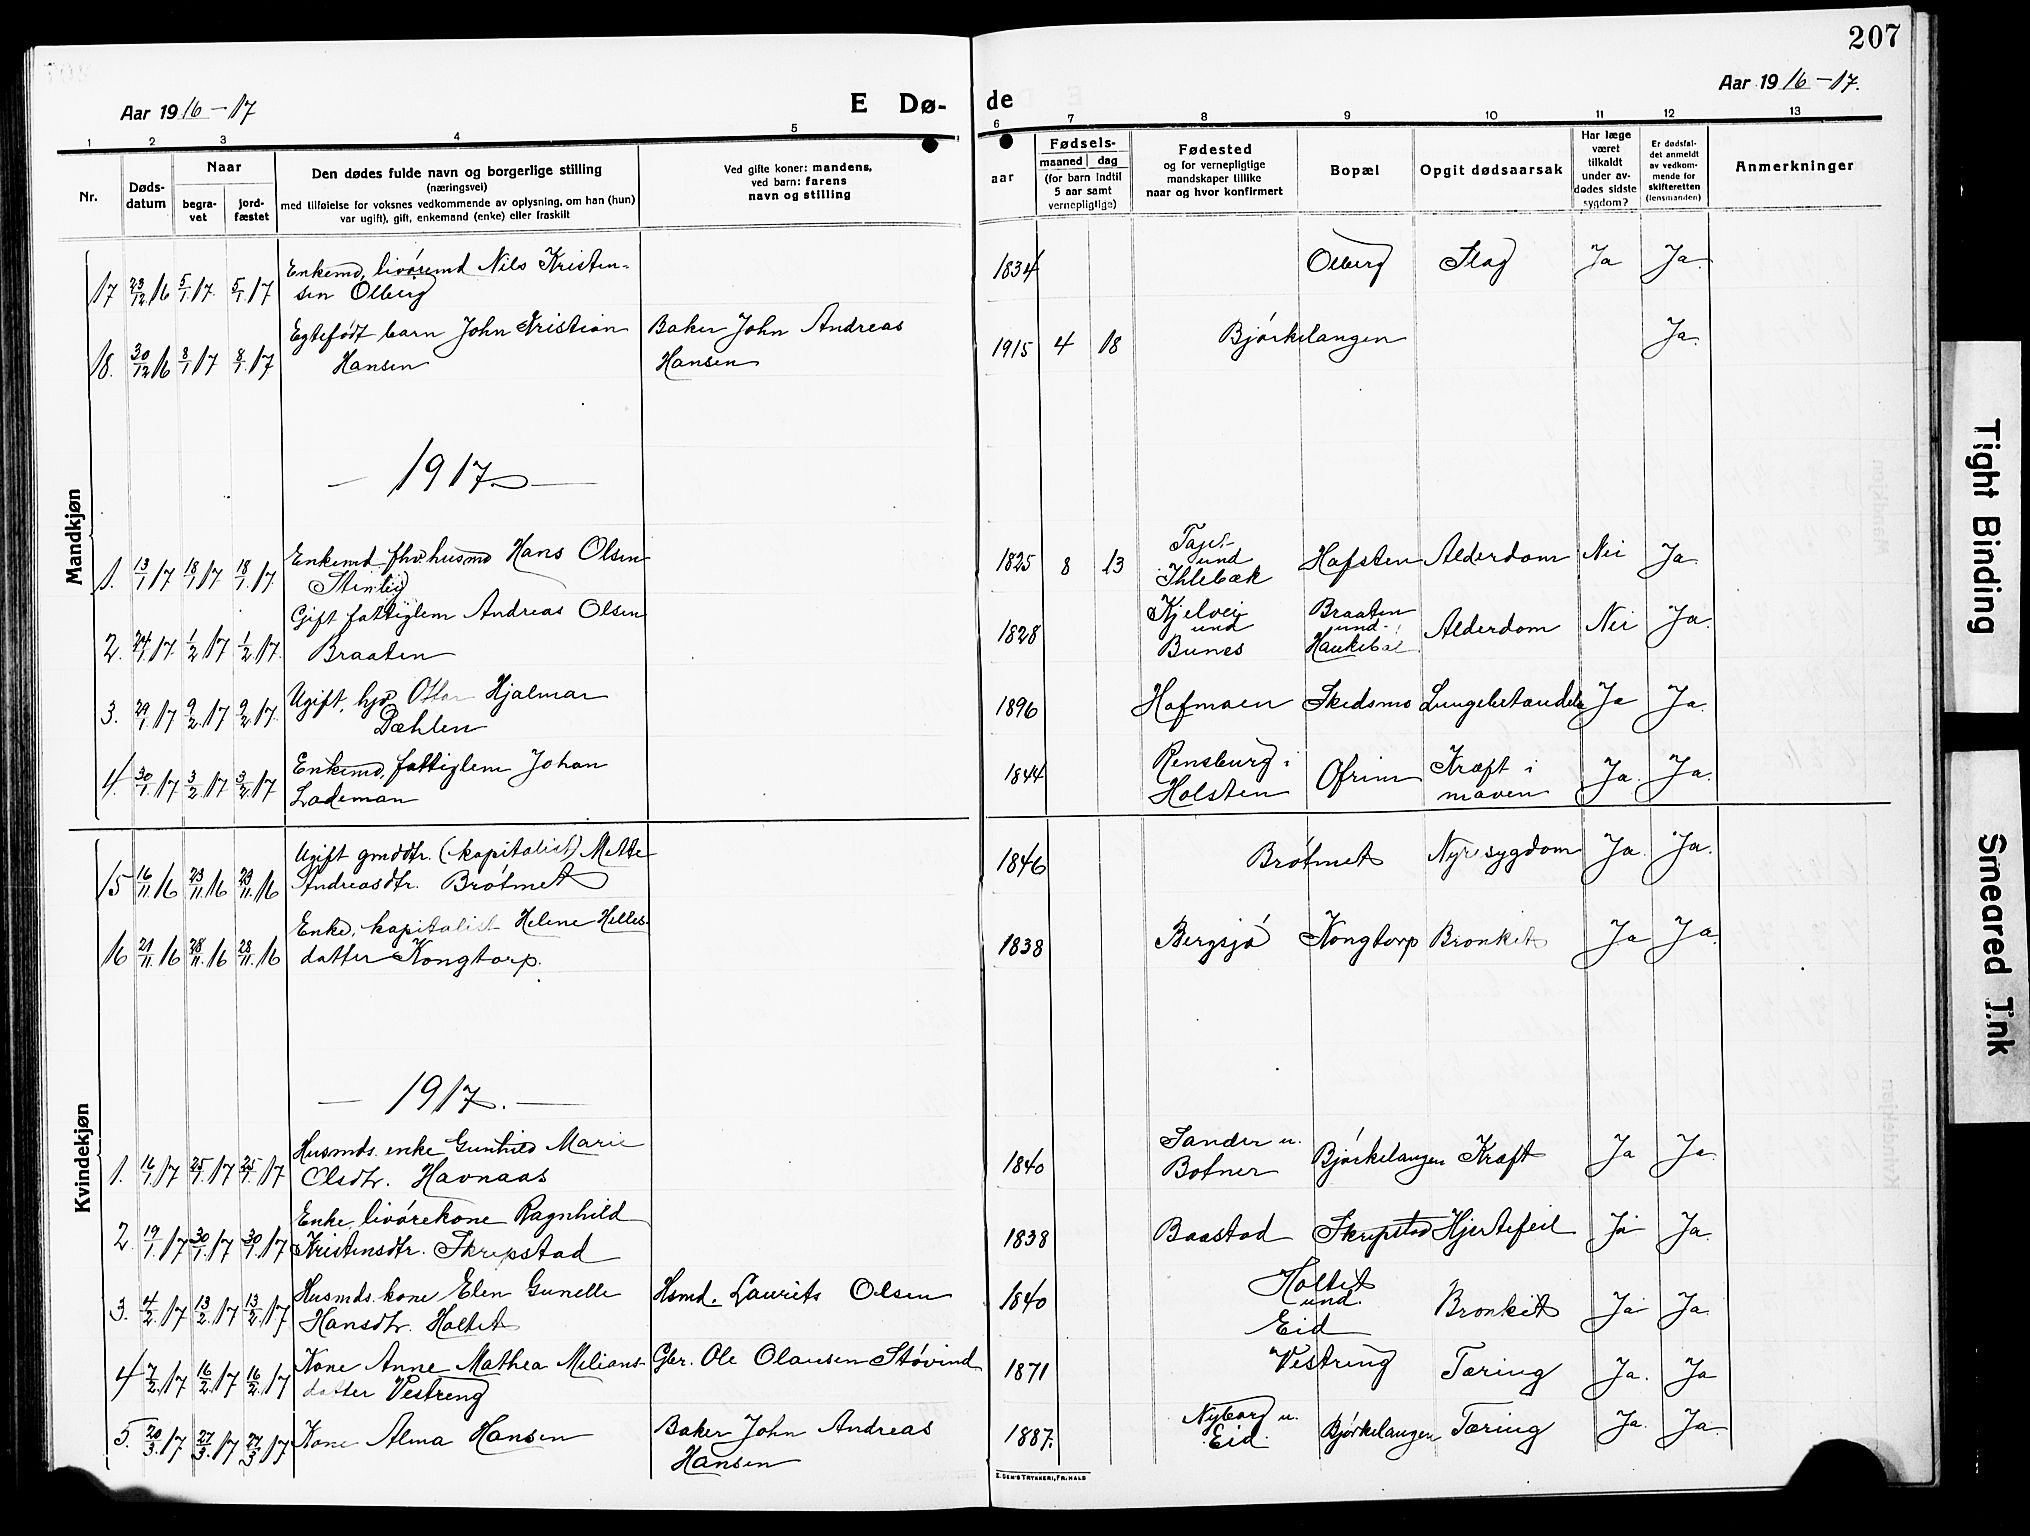 207
Aar 1916-17
E Dø-
de
Aar 1916-17.
1 2 3 4 5 6 7 8 9 10 11 12 13
Nr.
Døds-
datum
Naar
begra-
vet
jord-
fæstet
Den dødes fulde navn og borgerlige stilling
(næringsvei)
med tilføielse for voksnes vedkommende av oplysning, om han (hun)
var ugift), gift, enkemand (enke) eller fraskilt
Ved gifte koner: mandens,
ved barn: farens
navn og stilling
aar
Fødsels-
maaned dag
(for barn indtil
5 aar samt
vernepligtige)
Fødested
og for vernepligtige
mandskaper tillike
naar og hvor konfirmert
Bopæl
Opgit dødsaarsak
Har læge
været
tilkaldt
under av-
dødes sidste
sygdom?
Er dødsfal-
det anmeldt
av vedkom-
mende for
skifteretten
(lensmanden)
Anmerkninger
Mandkjøn
17 23/12 16 5/1 17. 5/1 17 Enkemd, livøremd Nils Kristen-
sen Olberg 1834 Olberg Slag Ja Ja.
18. 30/12 16 8/1 17 8/1 17 Egtefødt barn John Kristian Baker John Andreas
Hansen Hansen 1915 4 18 Bjørkelangen Ja.
- 1917. -
1. 13/1 17 18/1 17 18/1 17. Enkemd. fhv. husmd Hans Olsen
1825 8 13
und
Ihlebæk Hofsten Alderdom Nei Ja
2. 24/1 17. 1/2 17 1/2 17. Gift fattiglem Andreas Olsen
Braaten 1828 Kjelvei
und
Bunes Braaten
und
Alderdom Nei Ja.
3. 29/1 17 9/2 17 9/2 17. Ugift, Hjalmar
Dæhlen 1896 Hofmoen Skedsmo Lungebetændelse Ja Ja.
4. 30/1 17 3/2 17 3/2 17 Enkemd, fattiglem Johan
Lademan 1844 Rensburg i
Holsten Ofrim Kræft i
maven Ja. Ja.
Kvindekjøn
15 16/11 16 23/11 16 23/11 16 Ugift gmddtr. (kapitalist) Mette
Andreasdtr. Brøtmet 1846 Brøtmet Nyresygdom Ja. Ja.
16 21/11 16 28/11 16 28/11 16 Enke, kapitalist Helene Helles-
datter Kongtorp. 1838 Bergsjø Kongtorp Bronkit Ja Ja.
- 1917. -
1. 16/1 17 25/1 17 25/1 17 Husmds. enke Gunhild Marie
Olsdtr. Havnaas 1840 Sander u.
Botner Bjørkelangen Kræft Ja Ja.
2. 19/1 17 30/1 17 30/1 17 Enke, livørekone Ragnhild
Kristensdtr. Skrepstad 1838 Baastad Skrepstad Hjertefeil Ja Ja
3. 4/2 17 13/2 17 13/2 17 Husmds. kone Elen Gunelle Hsmd. Laurits Olsen
Hansdtr. Holtet 1840 Holtet
und.
Eid Bronkit Ja Ja
4 7/2 17 16/2 17 16/2 17 Kone Anne Mathea Milians- Gbr. Ole Olausen Støvind
datter Vestreng 1871 Vestreng Tæring Ja. Ja
5. 20/3 17 27/3 17 27/3 17 Kone Alma Hansen Baker John Andreas
Hansen 1887. Nyborg u.
Eid. Bjørkelangen Tæring Ja. Ja.
E. SEM'S TRYKKERI, FR.HALD
Tight Binding
Smeared Ink